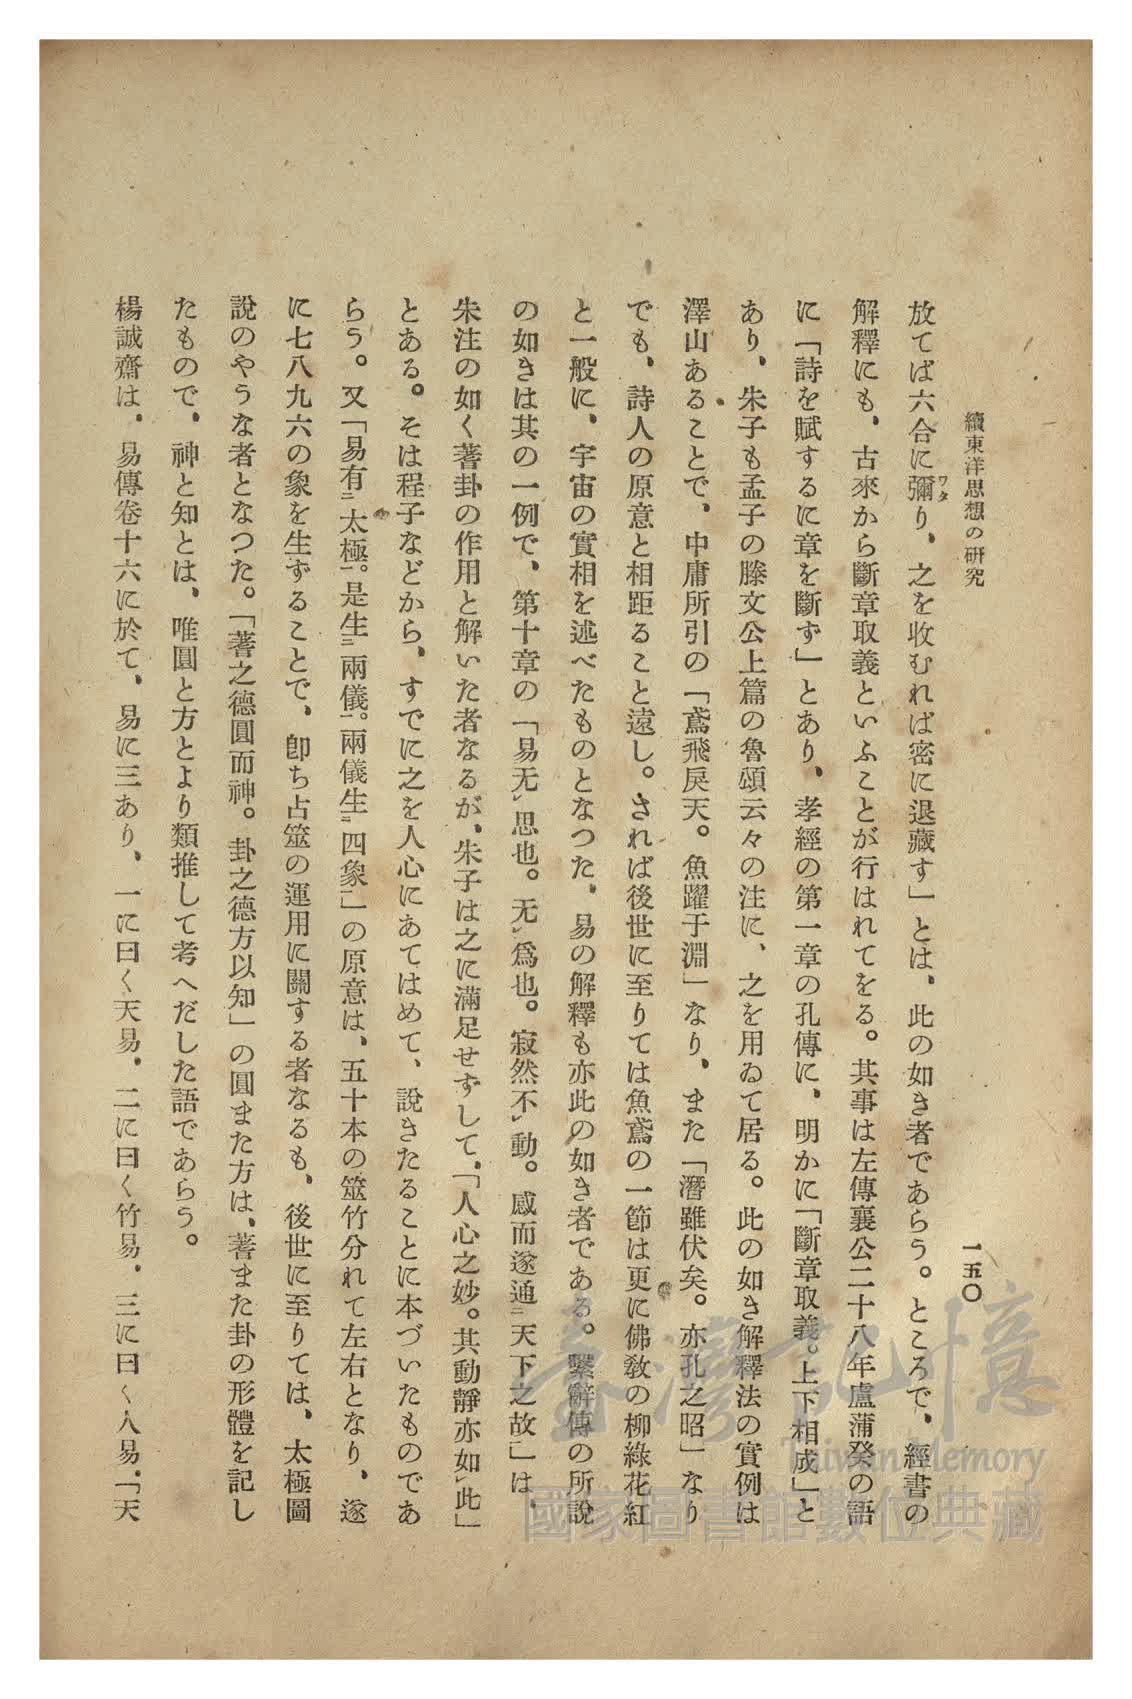 續東洋思想の研究
一五〇
放てば六合に彌り、之を收むれば密に退藏す」とは、此の如き者であらう。ところで、經書の
ワタ
解釋にも、古來から斷章取義といふことが行はれてをる。其事は左傳襄公二十八年盧蒲癸の語
に「詩を賦するに章を斷ず」とあり、孝經の第一章の孔傳に、明かに「斷章取義。上下相成」と
あり、朱子も孟子の滕文公上篇の魯頌云々の注に、之を用ゐて居る。此の如き解釋法の實例は
澤山あることで、中庸所引の「鳶飛戾天。魚躍于淵」なり、また「潛雖伏矣。亦孔之昭」なり
でも、詩人の原意と相距ること遠し。されば後世に至りては魚鳶の一節は更に佛敎の柳綠花紅
と一般に、宇宙の實相を述べたものとなつた、易の解釋も亦此の如き者である。繫辭傳の所說
の如きは其の一例で、第十章の「易无レ思也。无レ爲也。寂然不レ動。感而遂通二天下之故一」は、
朱注の如く蓍卦の作用と解いた者なるが、朱子は之に滿足せずして、「人心之妙。其動靜亦如レ此」
とある。そは程子などから、すでに之を人心にあてはめて、說きたることに本づいたものであ
らう。又「易有二太極一。是生二兩儀一。兩儀生二四象一」の原意は、五十本の筮竹分れて左右となり、遂
に七八九六の象を生ずることで、卽ち占筮の運用に關する者なるも、後世に至りては、太極圖
說のやうな者となつた。「蓍之德圓而神。卦之德方以知」の圓また方は、蓍また卦の形體を記し
たもので、神と知とは、唯圓と方とより類推して考へだした語であらう。
楊誠齋は、易傳卷十六に於て、易に三あり、一に曰く天易、二に曰く竹易、三に曰く人易、「天
臺灣記憶
Taiwan Memory
國家圖書館數位典藏